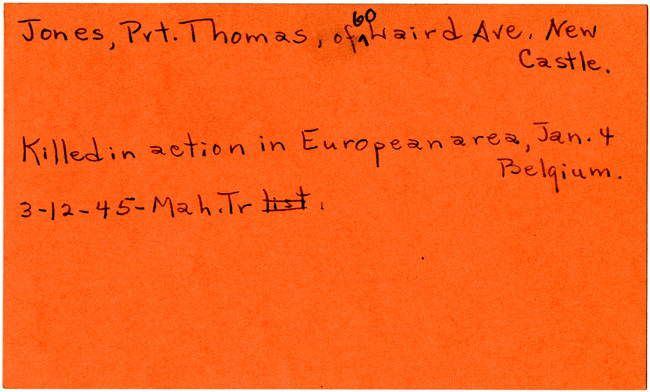 Jones, Pvt. Thomas, of 60 Laird Ave. New
Castle.
Killed in action in European area, Jan. 4
Belgium.
3-12-45-Mah.Tr list.